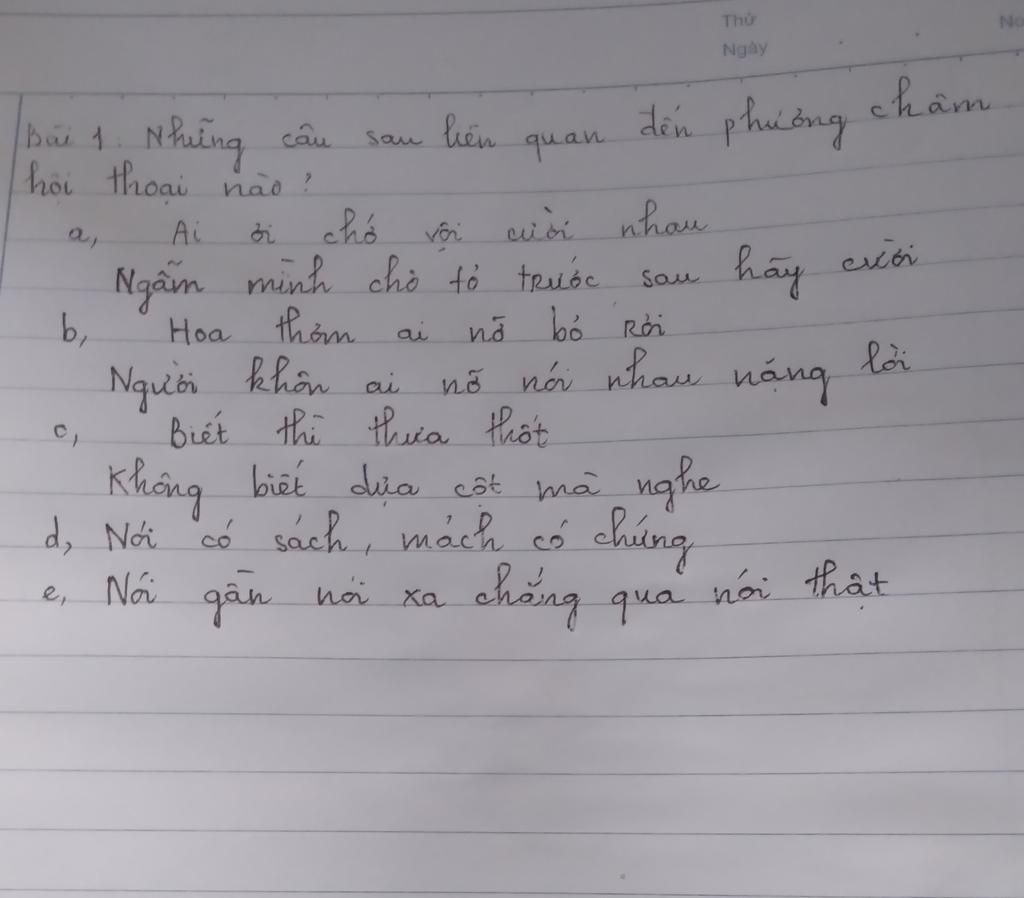 Thứ
Ngày
No
Bài 1. Những câu sau liên quan đến phương châm
hội thoại nào?
a, Ai ơi chớ vội cười nhau
Ngẫm mình cho tỏ trước sau hãy cười
b, Hoa thơm ai nỡ bỏ rơi
Người khôn ai nỡ nói nhau nặng lời
c, Biết thì thưa thốt
Không biết dựa cột mà nghe
d, Nói có sách, mách có chứng
e, Nói gần nói xa chẳng qua nói thật